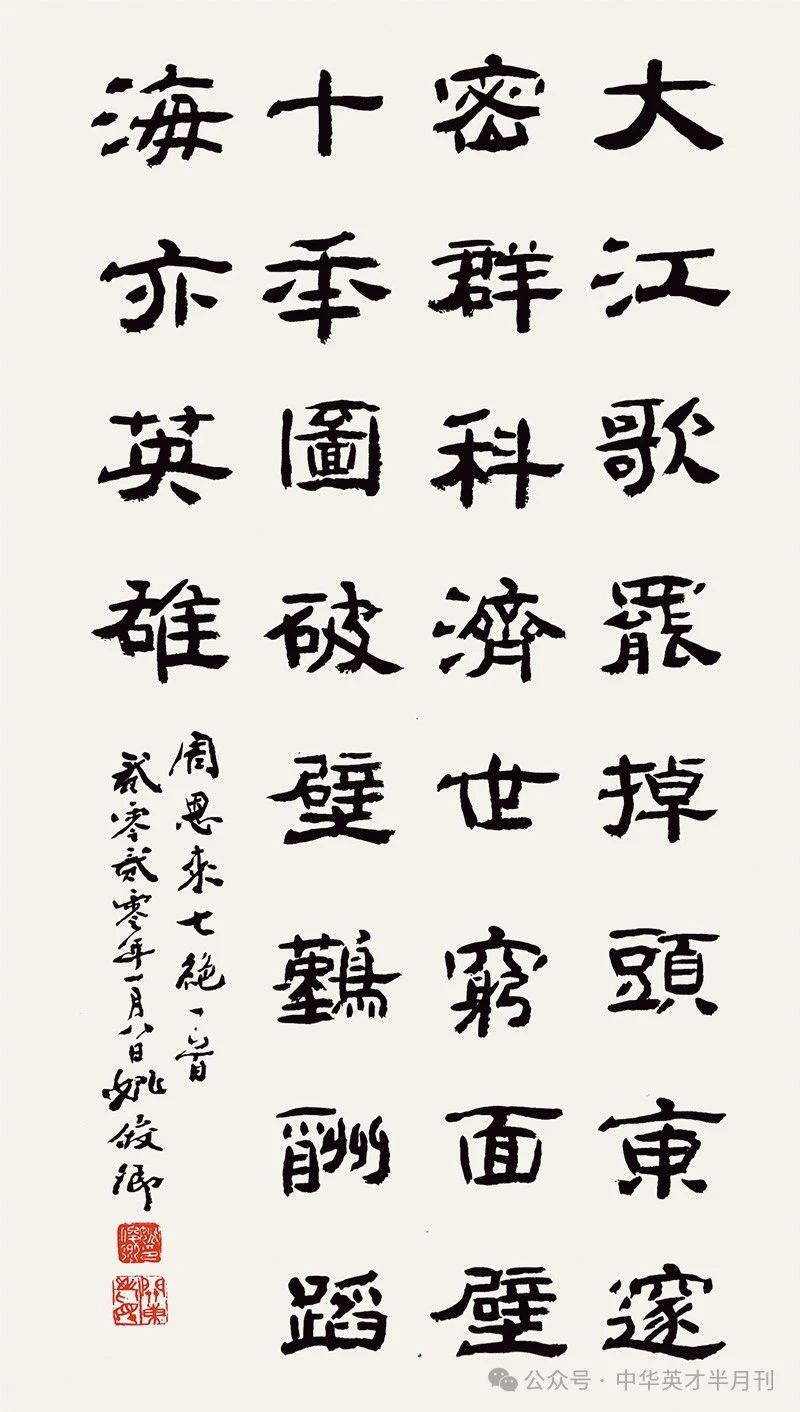 大江歌罷掉頭東邃
密群科濟世窮面壁
十年圖破壁難酬蹈
海亦英雄
周恩來七絕一首
貳零貳零年一月八日姚俊卿
公众号 · 中华英才半月刊